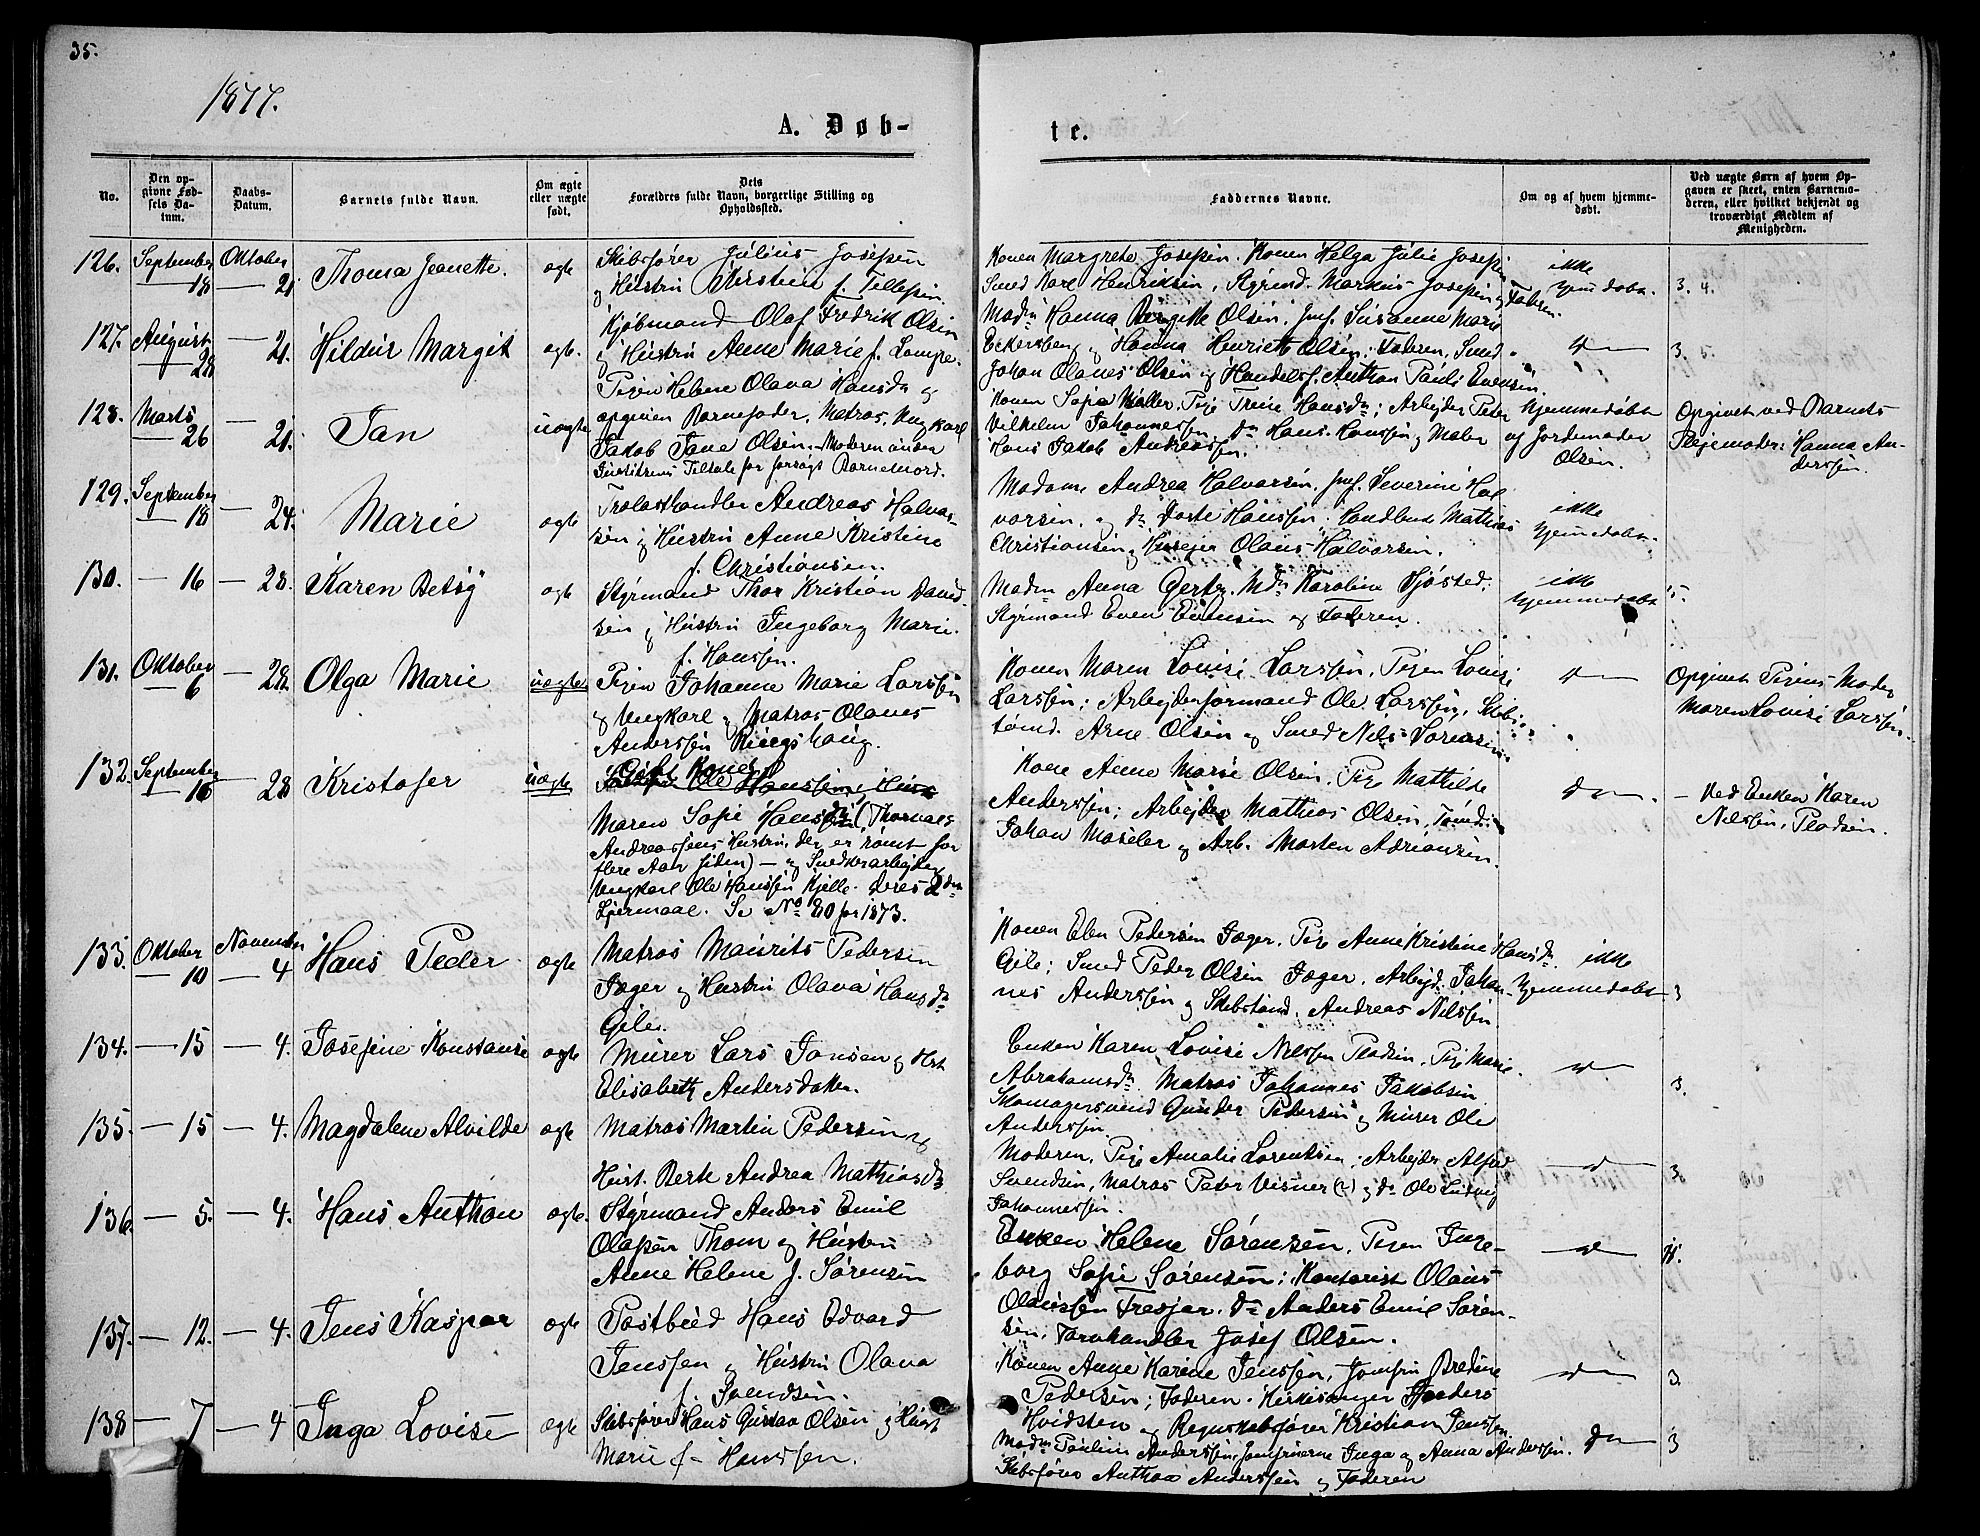 35.
1877.
A. Døb-
te.
No.
Den op-
givne Fød-
sels Da-
tum.
Daabs-
Datum.
Barnets fulde Navn.
Om ægte
eller uægte
født.
Dets
Forældres fulde Navn, borgerlige Stilling og
Opholdssted.
Faddernes Navne.
Om og af hvem hjemme-
døbt.
Ved uægte Børn af hvem Op-
gaven er skeet, enten Barnemo-
deren, eller hvilket bekjendt og
troværdigt Medlem af
Menigheden.
126. September 18 Oktober 21 Thoma Jeanette. ægte
Skibsfører Julius Josefsen
og Hustru Kirstine f. Tellefsen.
Konen Margrete Josefsen. Konen Helga Julie Josefsen
Smed Karl Henriksen, Styrmd. Markus Josefsen og Faderen.
ikke
hjemdøbt. 3.
127. August 28 — 21. Hildur Margit ægte.
Kjøbmand Olaf Fredrik Olsen
og Hustru Anne Marie f. Lampe.
Madm Hanna Birgitte Olsen, Jmf. Susanne Marie
Eckersberg og Hanna Henriette Olsen; Faderen, Smed
Johan Olaves Olsen og Handelsf. Anthon Pauli Evensen.
3.
128. Marts 26 — 21. Jan uægte
Pigen Helene Olava Hansdr og
opgiven Barnefader, Matros, Ungkarl
Jakob Jane Olsen. Moderen under
Justitiens Tiltale for forsøgt Barnemord.
Konen Sofie Møller. Pige Trine Hansdr; Arbejder Peter
Vilhelm Johannessen, do Hans Hanssen og Maler
Hans Jakob Andreassen.
Hjemmedøbt
af Jordemoder
Olsen.
Opgivet ved Barnets
Plejemoder: Hanna An-
derssen.
129. September 18 — 24. Marie ægte
Trælasthandler Andreas Halvor-
sen og Hustru Anne Kristine
f. Christiansen.
Madame Andrea Halvorsen, Jmf. Severine Hal
vorsen, og do Dorte Hanssen. Handlende Mathias
Christiansen og Husejer Olaus Halvorsen.
ikke
hjemdøbt.
130. — 16 — 28. Karen Betsy ægte
Styrmand Thor Kristian David-
sen og Hustru Ingeborg Marie
f. Hanssen.
Madm Anna Gertz. Mdm Karoline Sjøsted.
Styrmand Even Evensen og Faderen.
ikke
hjemmedøbt
131. Oktober 6 — 28. Olga Marie uægte
Pigen Johanne Marie Larssen
og Ungkarl og Matros Olaves
Anderssen Ringshaug.
Konen Maren Lovise Larssen. Pigen Lovise
Larssen; Arbejdsformand Ole Larssen, Skibs-
tømd. Arne Olsen og Smed Nils Sørensen.
Opgivet Pigens Moder
Maren Lovise Larssen.
132. September 16 — 28 Kristofer uægte
Gift Kone
Ole Hanssen og Hust
Maren Sofie Hansdr (Thorvals
Andreassens Hustru, der er rømt for
flere Aar siden) — og Snedkerarbejder
Ungkarl Ole Hanssen Kjelle. Deres 2det
Lejermaal. Se No 80 for 1873.
Kone Anne Marie Olsen. Pige Mathilde
Anderssen; Arbejder Mathias Olsen, Tømd.
Johan Maseler og Arb. Morten Adriansen.
do
— Ved Enken Karen
Nilssen, Pladsen.
133. Oktober 10 November 4 Hans Peder ægte
Matros Maurits Pedersen
Jæger og Hustru Olava Hansdr
Gile.
Konen Elen Pedersen Jæger. Pige Anne Kristine Hansdr
Gile; Smed Peder Olsen Jæger. Arbejd. Johan-
nes Anderssen og Skibstømd. Andreas Nilssen.
ikke
hjemmedøbt 3
134. — 15 — 4. Josefine Konstanse ægte
Murer Lars Jansen og Hst
Elisabeth Andersdatter.
Enken Karen Lovise Nilssen Pladsen. Pige Marie
Abrahamsdr. Matros Johannes Jakobsen
Skomagersvend Gunder Pedersen og Murer Ole
Anderssen.
3.
135. — 15 — 4. Magdalene Alvilde ægte
Matros Martin Pedersen og
Hust. Berte Andrea Mathiasdr
Moderen, Pige Amalie Lorentsen; Arbejder Alfred
Svendsen, Matros Peter Visner (?) og do Ole Ludvig
Johannessen.
3
136. — 5. — 4. Hans Anthon ægte.
Styrmand Anders Emil
Olafsen Thom og Hustru
Anne Helene f. Sørensen
Enken Helene Sørensen. Pigen Inge-
borg Sofie Sørensen; Kontorist Olaus
Olaussen Fresjar. do Anders Emil Søren-
sen, Farvehandler Josef Olsen.
137. — 12. — 4. Jens Kasper ægte
Postbud Hans Edvard
Jenssen og Hustru Olava
f. Svendsen.
Konen Anne Karine Jenssen, Jomfru Bredine
Pedersen; Faderen. Kirkesanger Anders
Hvidsten og Regnskabsfører Kristian Jenssen
3.
138 — 7 — 4 Inga Lovise ægte
Skibsfører Hans Gustav Olsen og Hust
Marie f. Hanssen.
Madm Pauline Anderssen, Jomfruerne Inga og Anna Anderssen.
Skibsfører Anthon Anderssen og Faderen
do 3